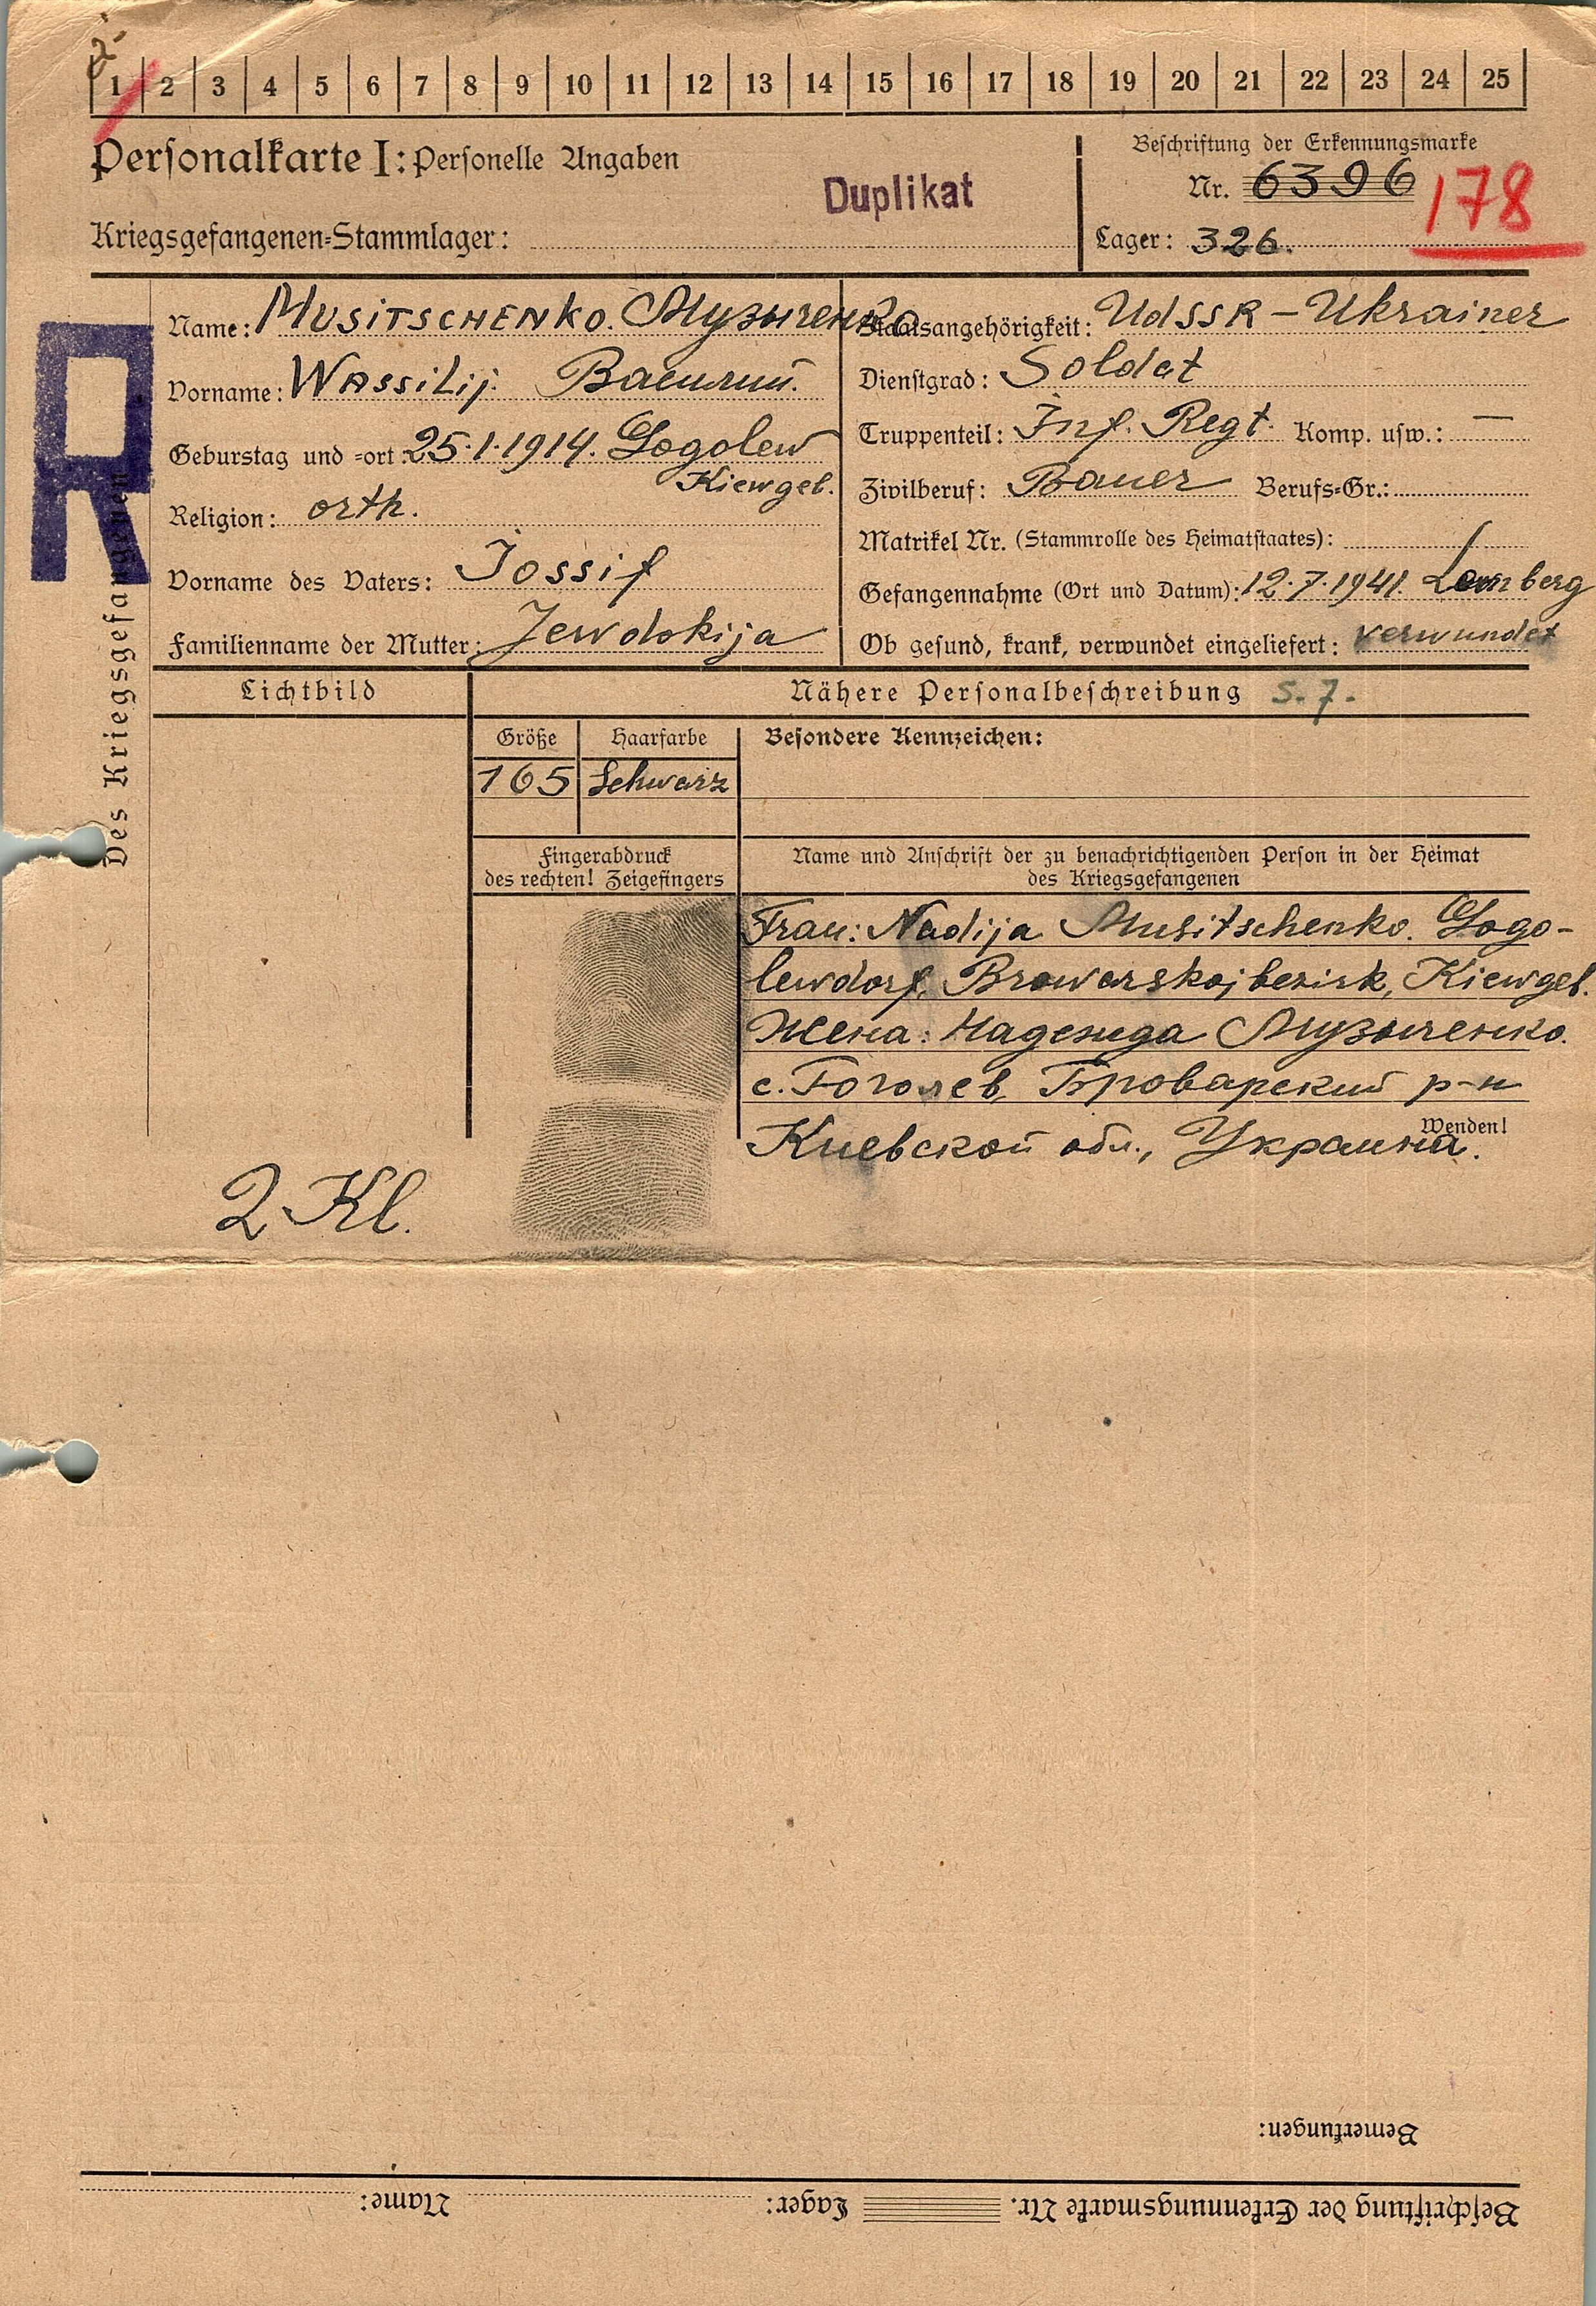 1 2 3 4 5 6 7 8 9 10 11 12 13 14 15 16 17 18 19 20 21 22 23 24 25
Personalkarte I: Personelle Angaben
Duplikat
Beschriftung der Erkennungsmarke
Nr. 6396
178
Kriegsgefangenen-Stammlager:
Lager: 326.
R
Des Kriegsgefangenen
Name: MUSITSCHENKO. Музыченко
Vorname: WASSILIJ. Василий.
Geburstag und -ort: 25.1.1914. Gogolew
Kiewgeb.
Religion: orth.
Vorname des Vaters: Jossif
Familienname der Mutter: Jewdokija
Staatsangehörigkeit: UdSSR - Ukrainer
Dienstgrad: Soldat
Truppenteil: Inf. Regt. Komp. usw.: —
Zivilberuf: Bauer Berufs-Gr.:
Matrikel Nr. (Stammrolle des Heimatstaates):
Gefangennahme (Ort und Datum): 12.7.1941. Lemberg
Ob gesund, krank, verwundet eingeliefert: verwundet
Lichtbild
Nähere Personalbeschreibung S. 7.
Größe Haarfarbe Besondere Kennzeichen:
165 Schwarz
Fingerabdruck
des rechten! Zeigefingers
Name und Anschrift der zu benachrichtigenden Person in der Heimat
des Kriegsgefangenen
Frau: Nadija Musitschenko. Gogo-
lewdorf, Browarskojbezirk, Kiewgeb.
Жена: Надежда Музыченко.
с. Гоголев, Броварский р-н
Wenden!
Киевской обл., Украина.
2 Kl.
Bemerkungen:
Beschriftung der Erkennungsmarke Nr. Lager: Name: